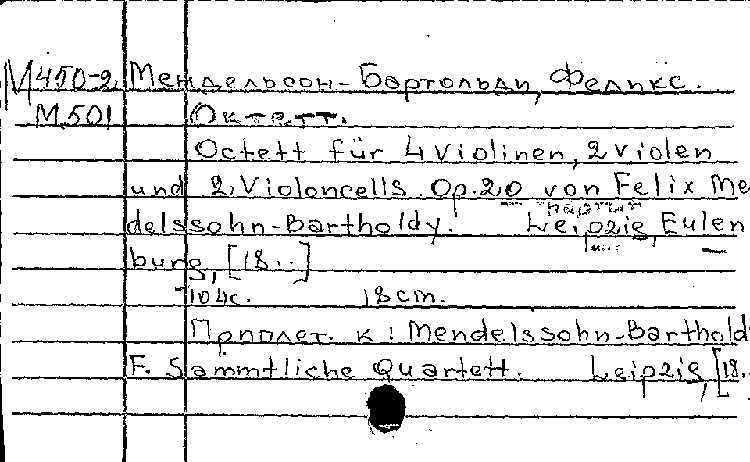 М450-2 Мендельсон-Бартольди, Феликс.
М501 Октетт.
Octett für 4 Violinen, 2 Violen
und 2 Violoncells. Op. 20 von Felix Me
delssohn-Bartholdy. Leipzig, Eulen
burg, [18..]
104с. 18cm.
Приплет. к: Mendelssohn-Barthold
F. Sämmtliche Quartett. Leipzig, [18..